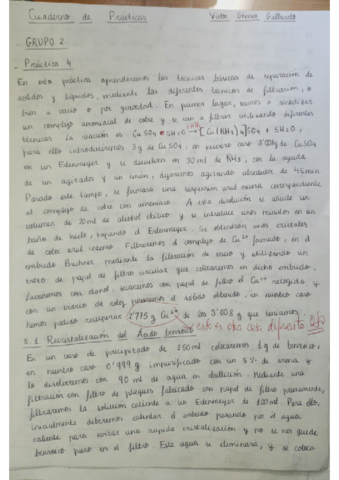 Cuaderno de Prácticas Víctor Gómez Gallardo
GRUPO 2
- Práctica 4
En esta práctica aprenderemos las técnicas básicas de separación de
sólidos y líquidos, mediante las diferentes técnicas de filtración, o
bien a vacío o por gravedad. En primer lugar, vamos a sintetizar
un complejo amoniacal de cobre y se van a filtrar utilizando diferentes
técnicas. La reacción es: CuSO4 · 5H2O → [Cu(NH3)4]SO4 + 5H2O,
para ello introduciremos 3g de CuSO4, en nuestro caso 3'003g de CuSO4
en un Erlenmeyer y se disuelven en 30 ml de NH3, con la ayuda
de un agitador y un imán, dejaremos agitando alrededor de 45 min.
Pasado este tiempo, se formará una suspensión azul oscura correspondiente
al complejo de cobre con amoniaco. A esta disolución se añade un
volumen de 20 ml de alcohol etílico y se introduce unos minutos en un
baño de hielo, tapando el Erlenmeyer. Se obtendrán unos cristales
de color azul intenso. Filtraremos el complejo de Cu2+ formado, en el
embudo Büchner mediante la filtración de vacío y utilizando un
trozo de papel de filtro circular que colocaremos en dicho embudo.
Lavaremos con etanol, secaremos con papel de filtro el Cu2+ recogido y
con un vidrio de reloj pesaremos el sólido obtenido, en nuestro caso
hemos podido recuperar 2'775 g Cu2+ de los 3'003 g que teníamos.
esto es otra cosa diferente
5.1 Recristalización del Ácido benzoico
En un vaso de precipitado de 250 ml colocaremos 1g de benzoico,
en nuestro caso 0'999 g impurificado con un 5% de arena y
lo disolvemos con 90 ml de agua en ebullición. Mediante una
filtración con filtro de pliegues fabricado con papel de filtro previamente,
filtraremos la solución caliente a un Erlenmeyer de 100 ml. Para ello,
inicialmente deberemos calentar el embudo pasando por él agua
caliente para evitar una rápida cristalización y no se nos quede
benzoico puro en el filtro. Este agua se eliminará, y se coloca